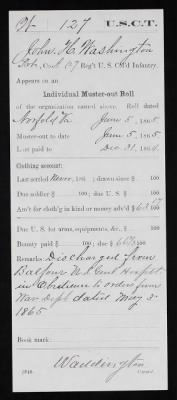 W 127 U.S.C.T.
John H. Washington
Co. Reg't U. S. Col'd Infantry.
Appears on an
Individual Muster-out Roll
of the organization named above. Roll dated
Norfolk Va June 5, 1865.
Muster-out to date June 5, 1865.
Last paid to Dec 31, 1864.
Clothing account:
Last settled Never, 186 ; drawn since $ 100
Due soldier $ 100; due U. S. $ 100
Am't for cloth'g in kind or money adv'd $ 100
Due U. S. for arms, equipments, &c., $ 100
Bounty paid $ 100; due $ 100
Remarks: Discharged from
Balfour U.S. Genl Hospital
in Obedience to orders from
War Dept dated May 3
1865
Book mark:
Waddington
Copyist.